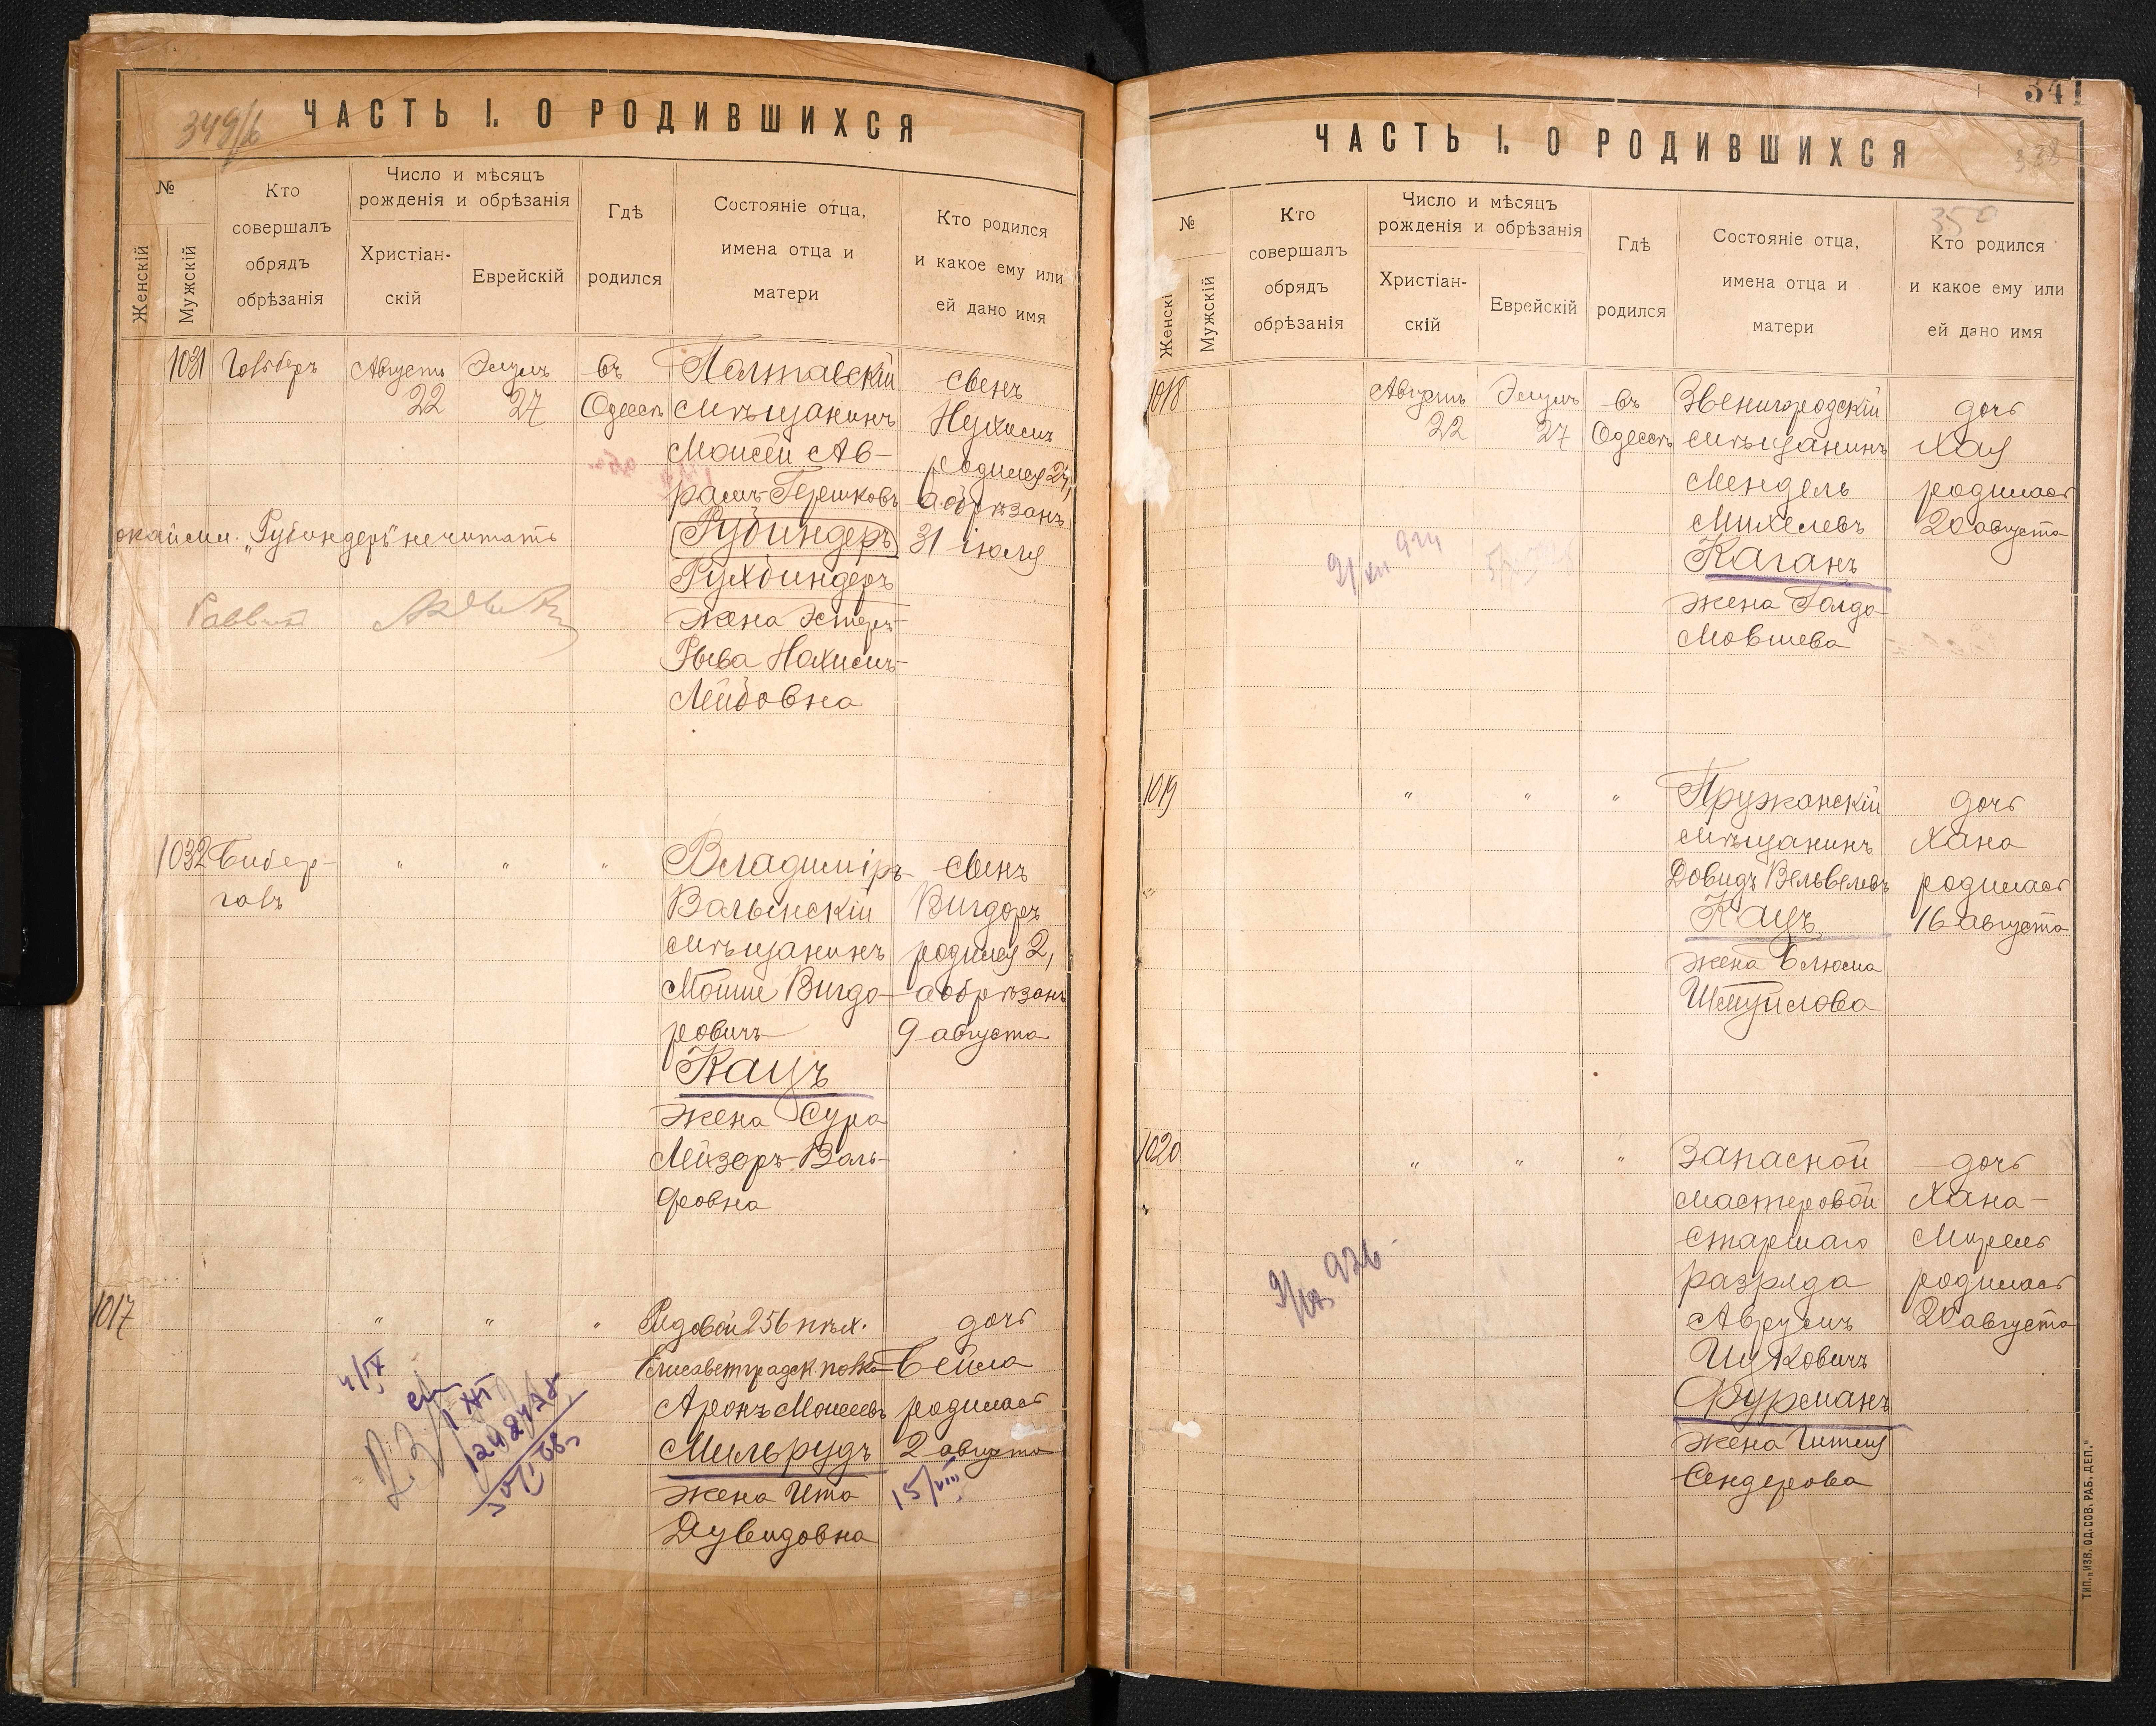 349/б
ЧАСТЬ I. О РОДИВШИХСЯ
№
Женскій
Мужскій
Кто
совершалъ
обрядъ
обрѣзанія
Число и мѣсяцъ
рожденія и обрѣзанія
Христіан-
скій
Еврейскій
Гдѣ
родился
Состояніе отца,
имена отца и
матери
Кто родился
и какое ему или
ей дано имя
1031
Августъ
22
Элулъ
27
въ
Одессѣ
Полтавскій
мѣщанинъ
Моисей Ав-
рамъ-Гершковъ
Рубиндеръ
Рухбиндеръ
жена Эстеръ-
Рыва Нахимъ-
Лейбовна
сынъ
Нухимъ
родился 24,
а обрѣзанъ
31 іюля
окайми. „Рубиндеръ" не читать
Раввинъ
1032
Бибер-
галъ
"
"
"
Владиміръ-
Волынскій
мѣщанинъ
Мойше Вигдо-
ровичъ
Кацъ
жена Сура
Лейзоръ-Воль-
фовна
сынъ
Вигдоръ
родился 2,
а обрѣзанъ
9 августа
1017
"
"
"
Рядовой 256 пѣх.
Елисаветградск. полка
Аронъ Моисеевъ
Мильрудъ
жена Ита
Дувидовна
дочь
Бейла
родилась
2 августа
15/VIII
4/IX
341
338
350
ЧАСТЬ I. О РОДИВШИХСЯ
№
Женскі
Мужскій
Кто
совершалъ
обрядъ
обрѣзанія
Число и мѣсяцъ
рожденія и обрѣзанія
Христіан-
скій
Еврейскій
Гдѣ
родился
Состояніе отца,
имена отца и
матери
Кто родился
и какое ему или
ей дано имя
1018
Августъ
22
Элулъ
27
въ
Одессѣ
Звенигородскій
мѣщанинъ
Мендель
Михелевъ
Каганъ
жена Голда
Мовшева
дочь
Хая
родилась
20 августа
1019
"
"
"
Пружанскій
мѣщанинъ
Довидъ Вельвелевъ
Кацъ
жена Блюма
Шмуйлова
дочь
Хана
родилась
16 августа
1020
"
"
"
Запасной
мастеровой
старшаго
разряда
Аврумъ
Ицковичъ
Фурманъ
жена Гитля
Сендерова
дочь
Хана-
Мирель
родилась
20 августа
926
ТИП. „ИЗВ. ОД. СОВ. РАБ. ДЕП."